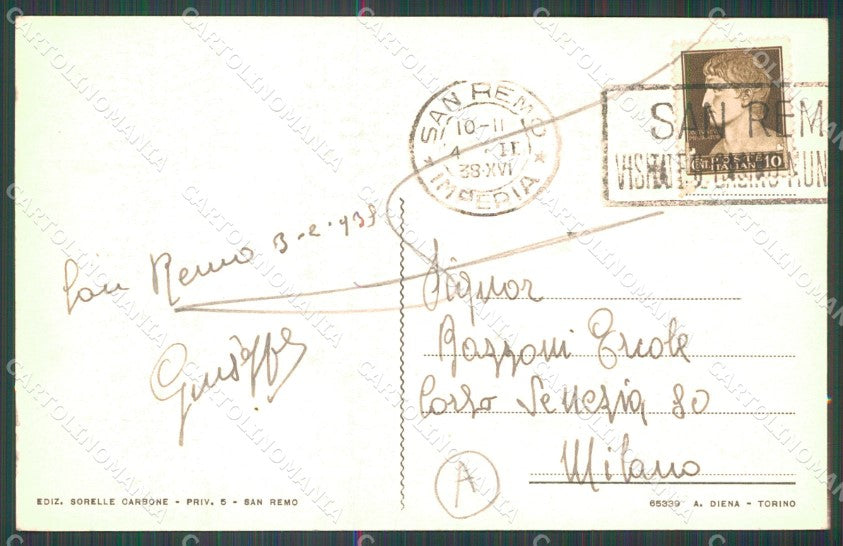 SAN REMO
10-11
4 · II
38·XVI
IMPERIA
SAN REM
VISITATE IL CASINO MUN
POSTE
ITALIANE
10
San Remo 3-2-938
Giuseppe
Signor
Bazzoni Ercole
Corso Venezia 80
Milano
A
EDIZ. SORELLE CARBONE - PRIV. 5 - SAN REMO
65339 A. DIENA - TORINO
CARTOLINOMANIA